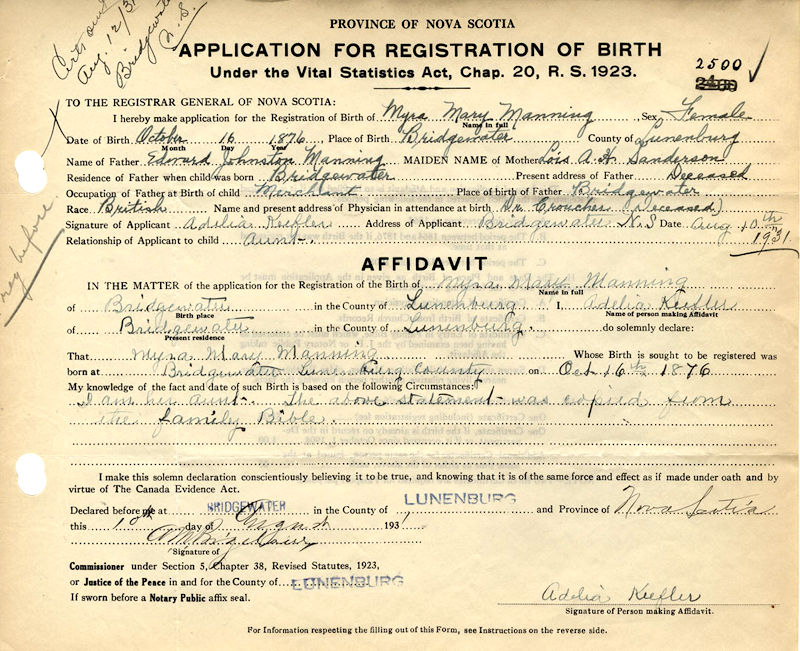 Aug. 12/31
Bridgewater
N.S.
PROVINCE OF NOVA SCOTIA
APPLICATION FOR REGISTRATION OF BIRTH
Under the Vital Statistics Act, Chap. 20, R. S. 1923.
2500
TO THE REGISTRAR GENERAL OF NOVA SCOTIA:
I hereby make application for the Registration of Birth of Myra Mary Manning Sex Female
Name in full
Date of Birth October 16 1876 Place of Birth Bridgewater County of Lunenburg
Month Day Year
Name of Father Edward Johnston Manning MAIDEN NAME of Mother Lois A. H. Sanderson
Residence of Father when child was born Bridgewater Present address of Father Deceased
Occupation of Father at Birth of child Merchant Place of birth of Father Bridgewater
Race British Name and present address of Physician in attendance at birth Dr Croucher (Deceased)
Signature of Applicant Adelia Keefler Address of Applicant Bridgewater N.S Date Aug 10th
Relationship of Applicant to child aunt. 1931
reg before
AFFIDAVIT
IN THE MATTER of the application for the Registration of the Birth of Myra Mary Manning
Name in full
of Bridgewater in the County of Lunenburg. I, Adelia Keefler
Birth place Name of person making Affidavit
of Bridgewater in the County of Lunenburg. do solemnly declare:
Present residence
That Myra Mary Manning Whose Birth is sought to be registered was
born at Bridgewater Lunenburg County on Oct 16th 1876
My knowledge of the fact and date of such Birth is based on the following Circumstances:
I am her aunt. The above statement was copied from
the family Bible.
I make this solemn declaration conscientiously believing it to be true, and knowing that it is of the same force and effect as if made under oath and by
virtue of The Canada Evidence Act.
Declared before me at BRIDGEWATER in the County of LUNENBURG and Province of Nova Scotia
this 10th day of August 1931
Signature of
Commissioner under Section 5, Chapter 38, Revised Statutes, 1923,
or Justice of the Peace in and for the County of LUNENBURG
If sworn before a Notary Public affix seal.
Adelia Keefler
Signature of Person making Affidavit.
For Information respecting the filling out of this Form, see Instructions on the reverse side.